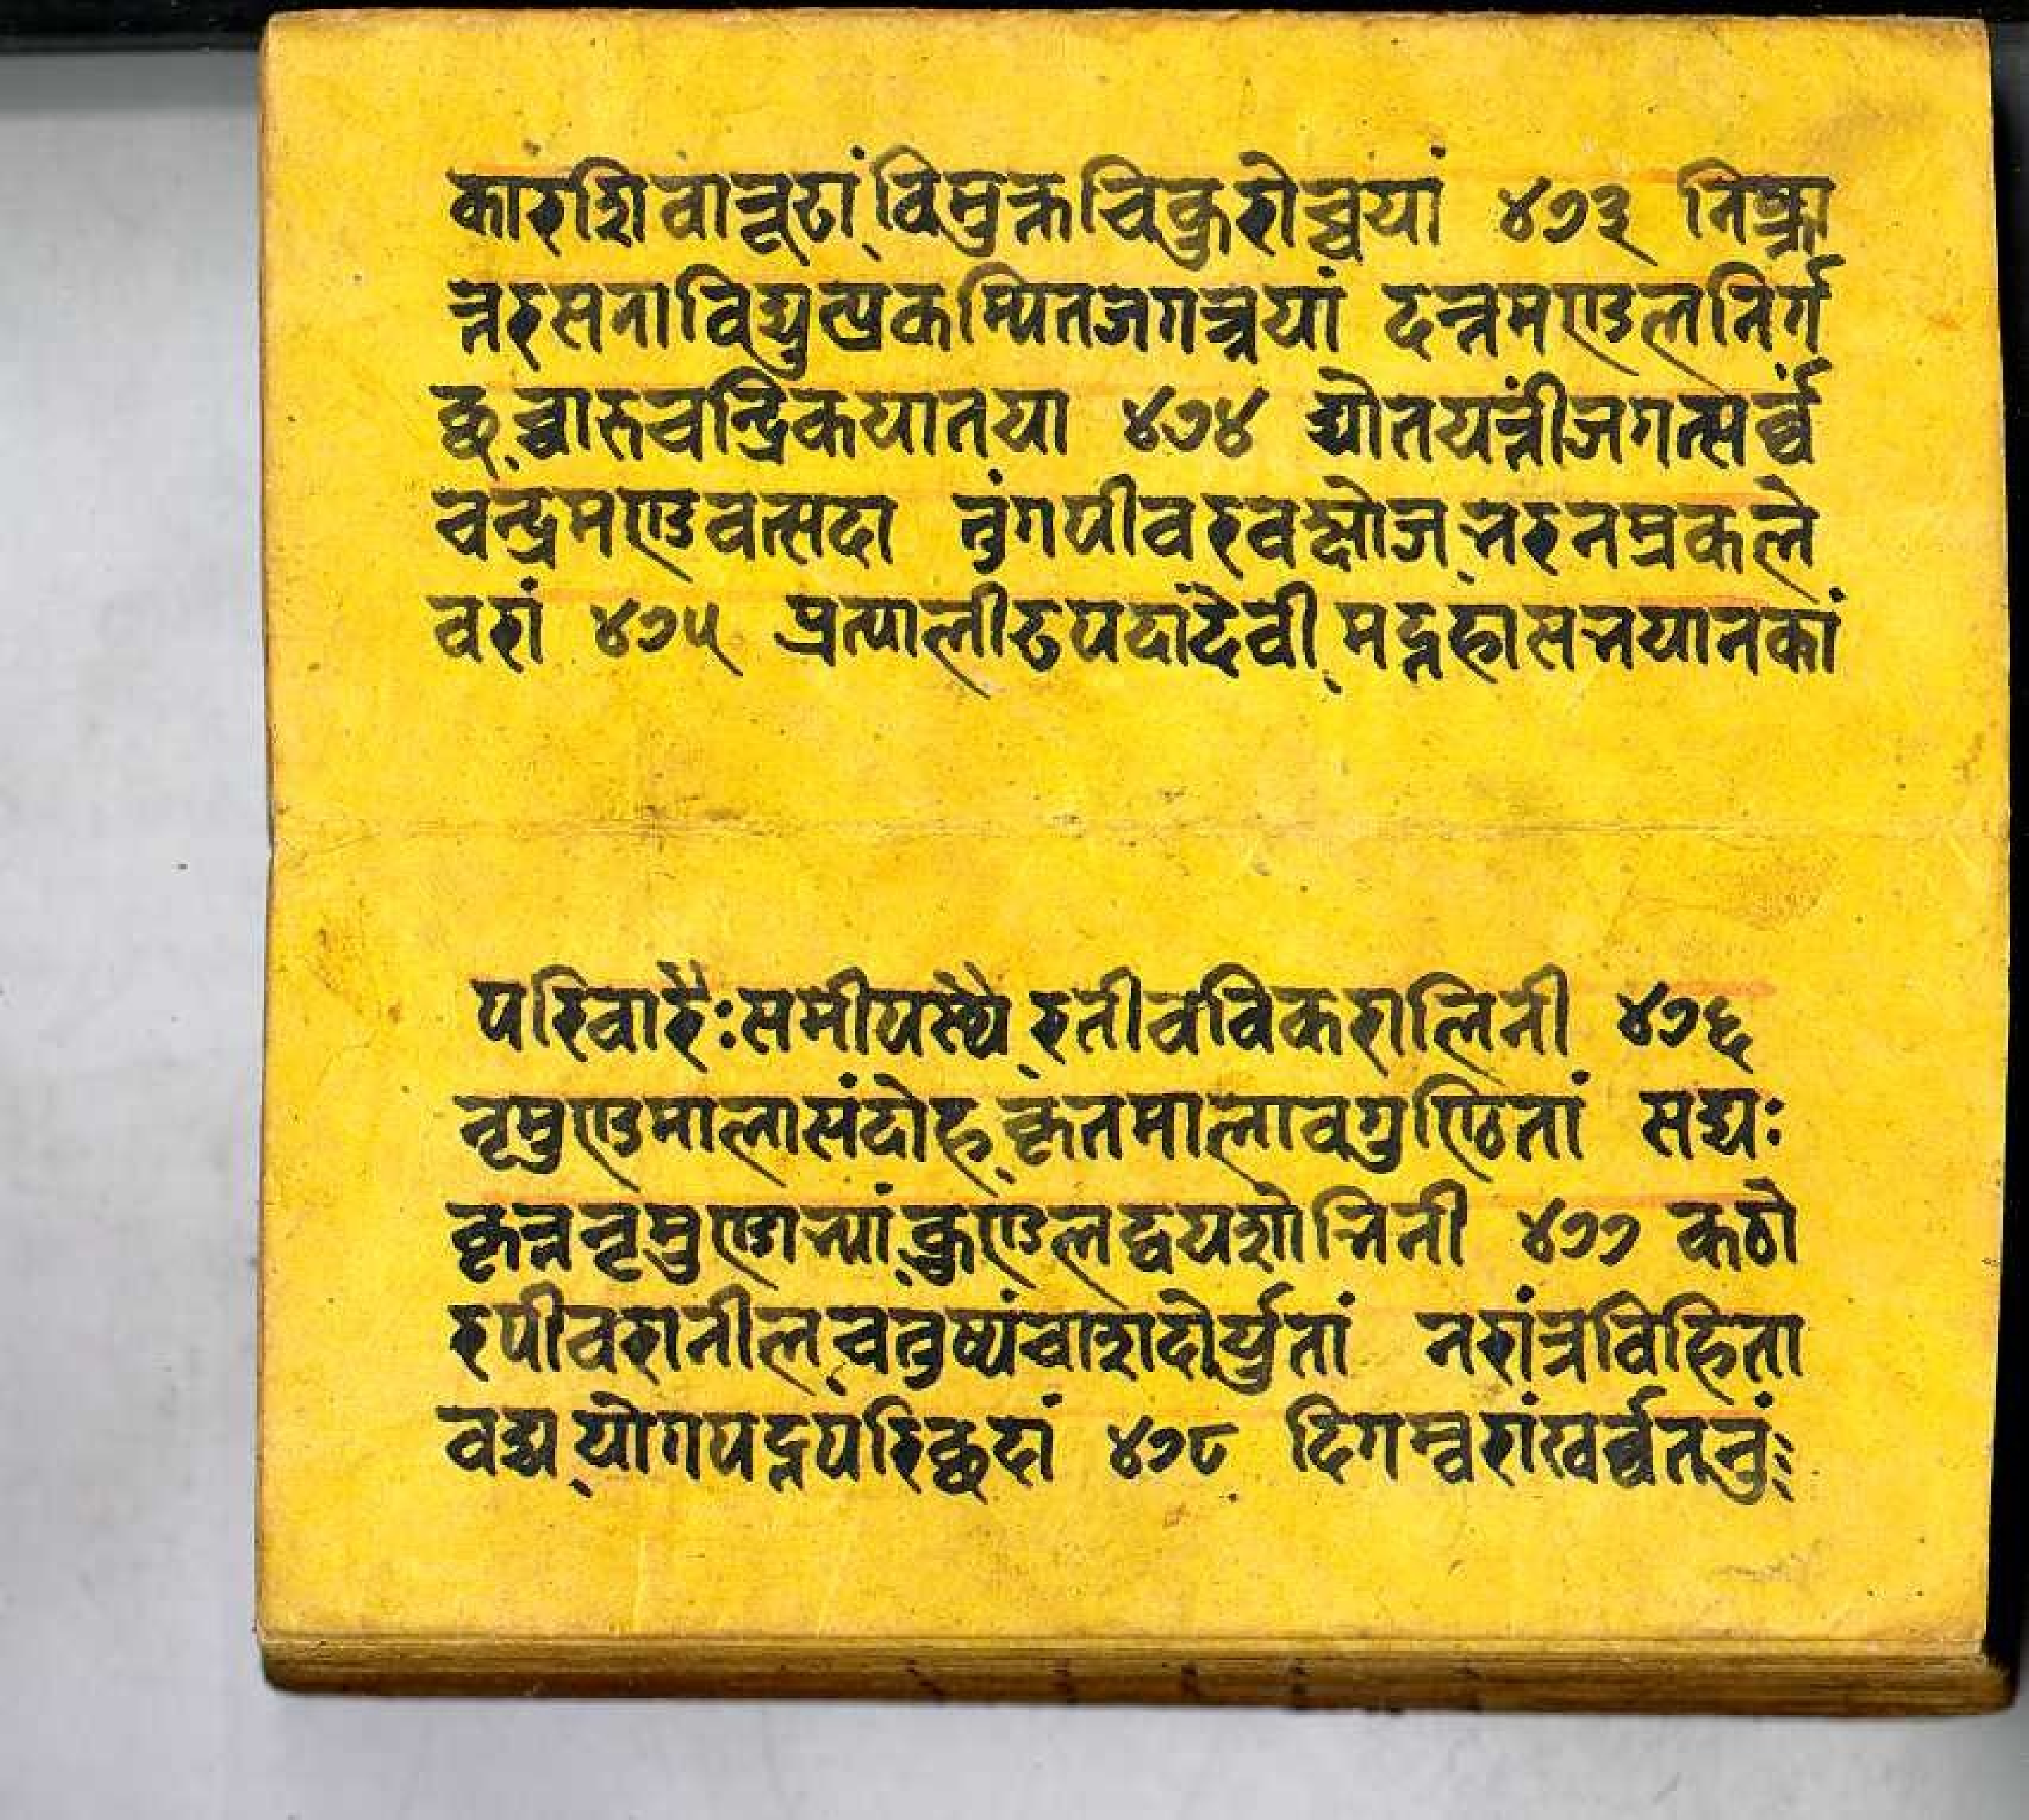 कारशिवारूढां विमुक्तचिकुरोच्चयां ४७३ निष्क्रा
न्तरसनाविद्युत्प्रकम्पितजगत्त्रयां दन्तमण्डलनिर्ग
च्छच्चारुचन्द्रिकयातया ४७४ द्योतयन्तीं जगत्सर्व्वं
चन्द्रमण्डवत्सदा तुंगपीवरवक्षोजभरनम्रकले
वरां ४७५ प्रत्यालीढपदां देवी मट्टहासभयानकां
परिवारैः समीपस्थै रतीवविकरालिनी ४७६
नृमुण्डमालासंदोह कृतमालावगुण्ठितां सद्यः
कृत्तनृमुण्डाभ्यां कुण्डलद्वयशोभिनी ४७७ कठो
रपीवरानीलचतुष्पंचाशदोर्युतां नरांत्रविहिता
वद्य योगपट्टपरिच्छदां ४७८ दिगम्वरां खर्व्वतनुं